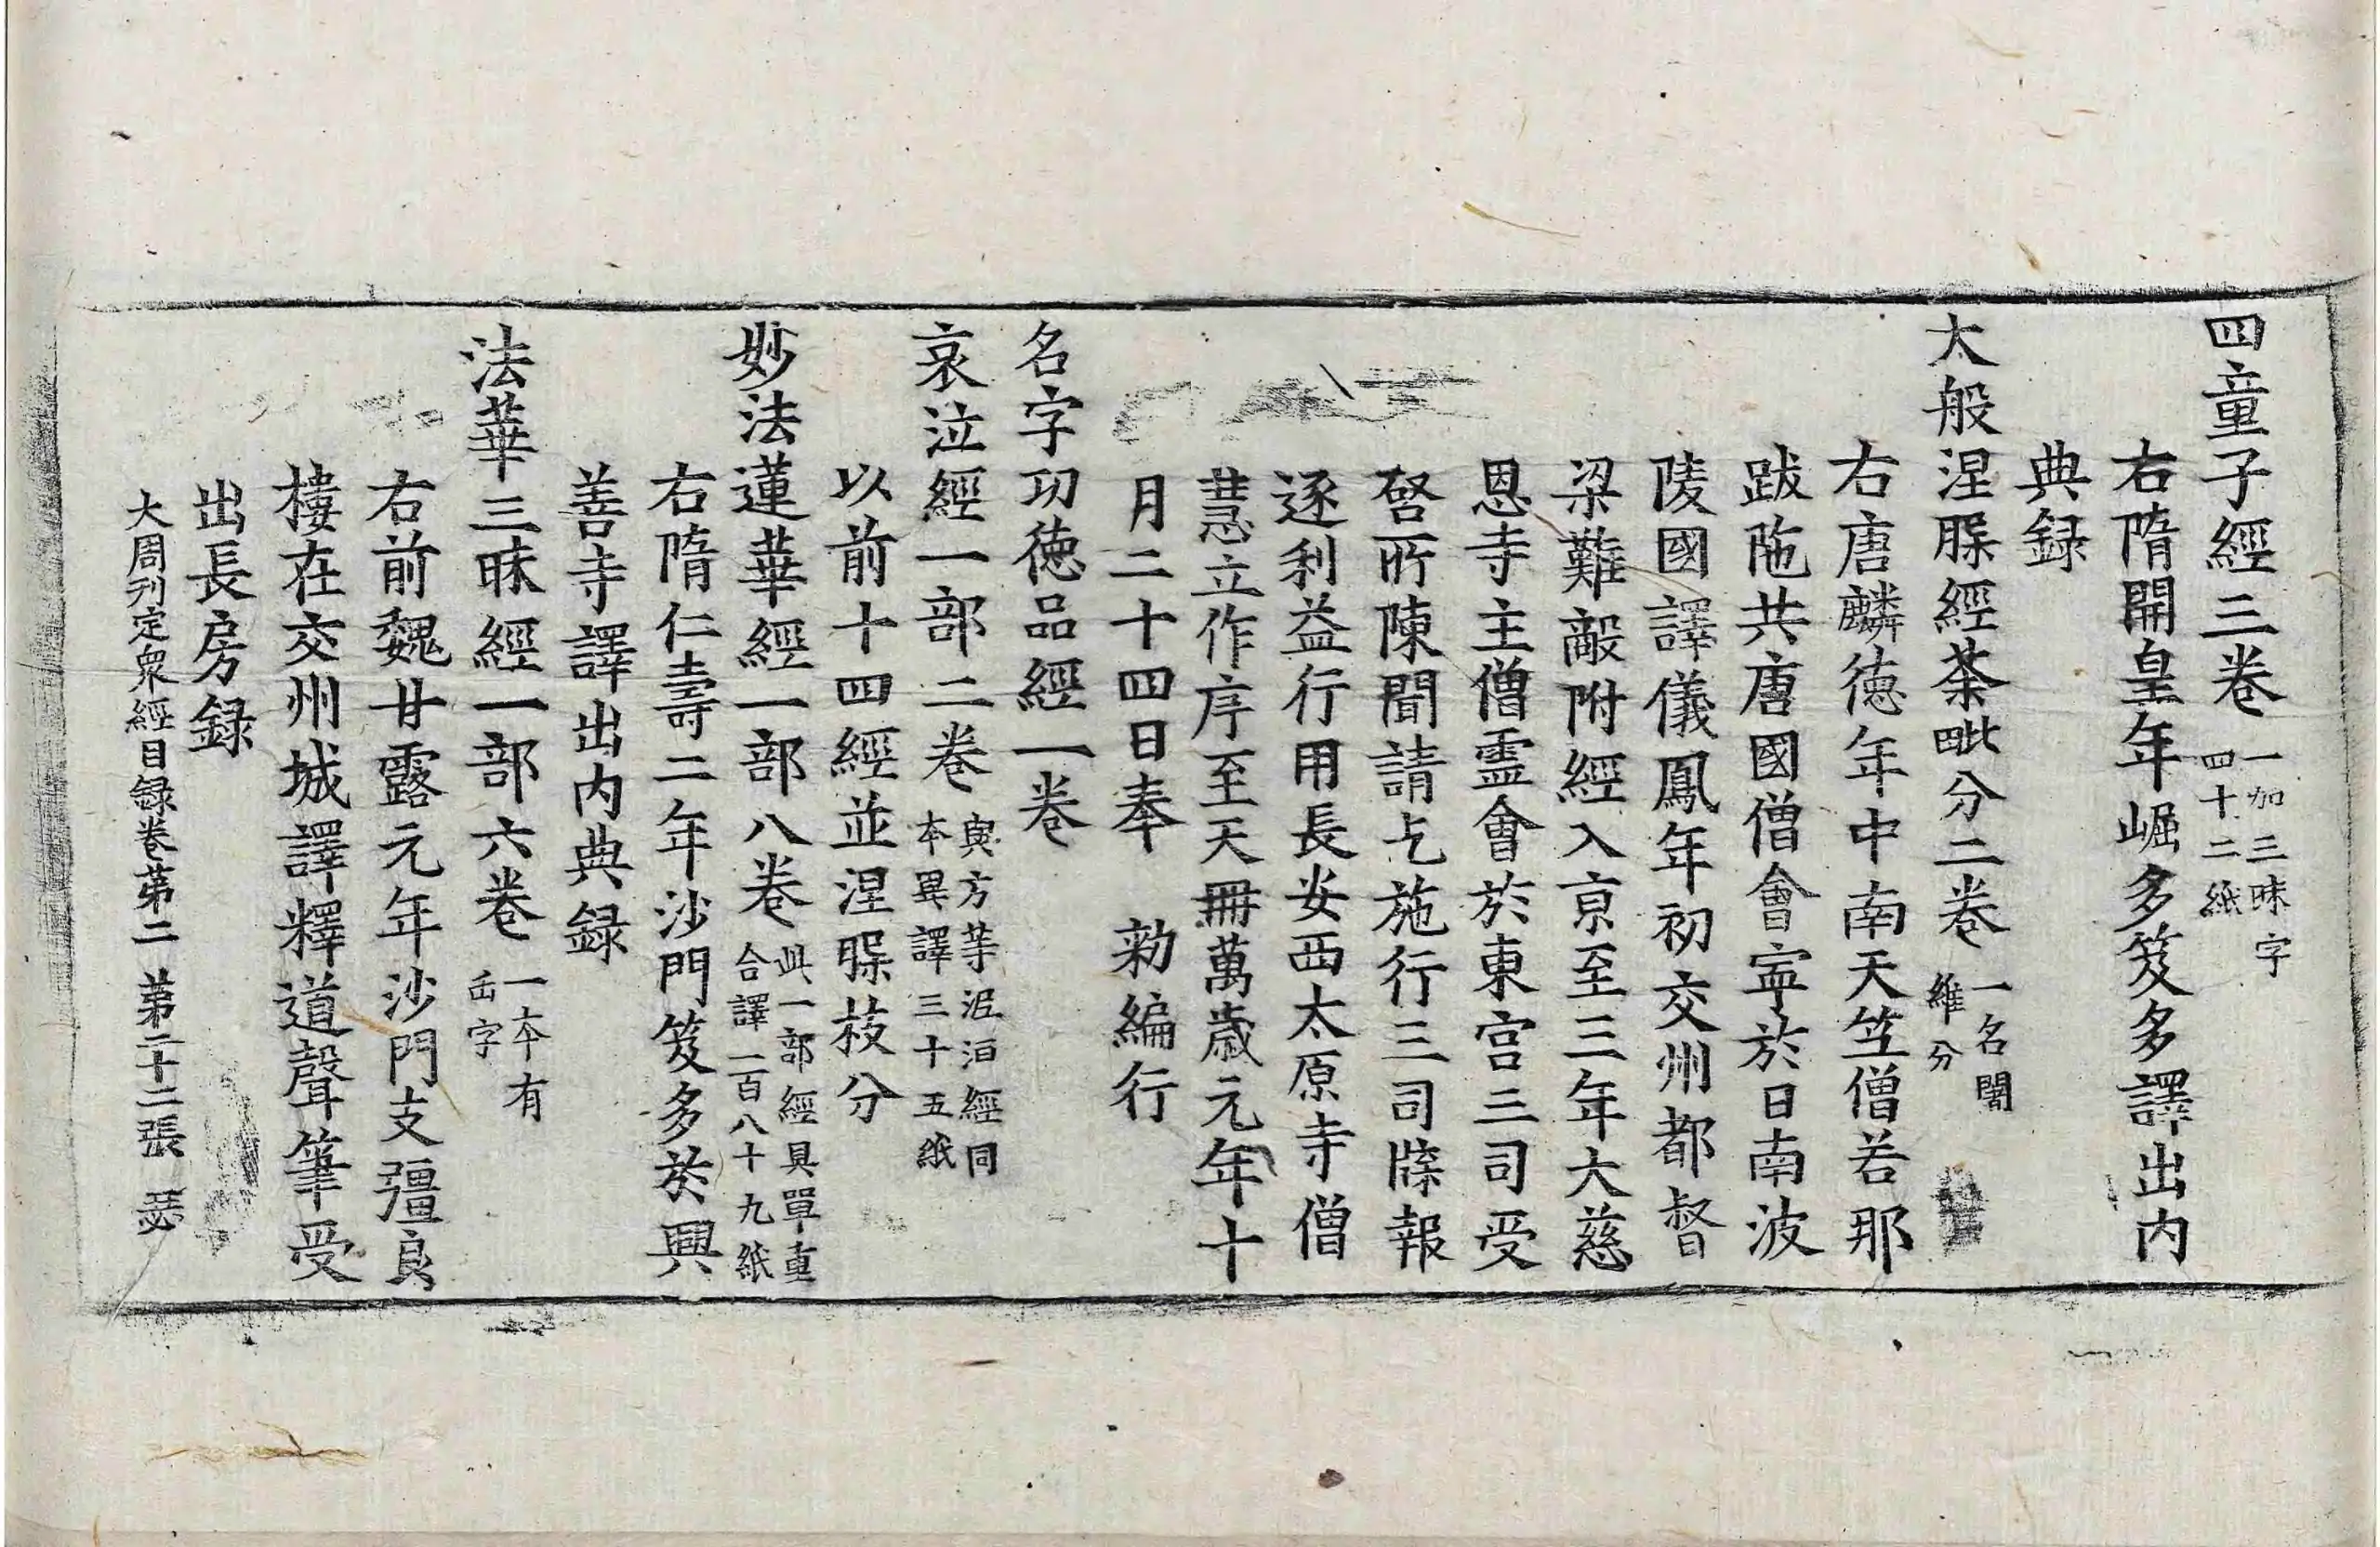 四童子經三卷 一加三昧字四十二紙
右隋開皇年崛多笈多譯出內
典録
大般涅槃經荼毗分二卷 一名闍維分
右唐麟德年中南天竺僧若那
跋陁共唐國僧會寧於日南波
陵國譯儀鳳年初交州都督
梁難敵附經入京至三年大慈
恩寺主僧靈會於東宮三司受
啓所陳聞請乞施行三司牒報
逐利益行用長安西太原寺僧
慧立作序至天冊萬歲元年十
月二十四日奉 勑編行
名字功德品經一卷
哀泣經一部二卷 與方等泥洹經同本異譯三十五紙
以前十四經並涅槃枝分
妙法蓮華經一部八卷 此一部經具單重合譯一百八十九紙
右隋仁壽二年沙門笈多於興
善寺譯出內典録
法華三昧經一部六卷 一本有正字
右前魏甘露元年沙門支彊良
樓在交州城譯釋道聲筆受
出長房録
大周刊定衆經目録卷第二 第二十二張 瑟